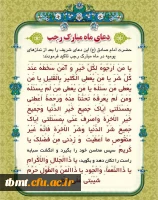 دعای ماه مبارک رجب
حضرت امام صادق (ع) این دعای شریف را بعد از نمازهای
یومیه در ماه مبارک رجب تاکید فرمودند:
یا من ارجوه لکل خیر و آمن سخطه عند
کل شر یا من یعطی الکثیر بالقلیل یا من
یعطی من سئله یا من یعطی من لم یسئله
ومن لم یعرفه تحننا منه ورحمة اعطنی
بمسئلتی ایاک جمیع خیر الدنیا وجمیع
خیر الاخرة واصرف عنی بمسئلتی ایاک
جمیع شر الدنیا وشر الاخرة فانه غیر
منقوص ما اعطیت و زدنی من فضلک یا
کریم
یا ذاالجلال والاکرام
یا ذاالنعماء والجود یا ذاالمن والطول حرم
شیبتی
tbmt.cfu.ac.ir